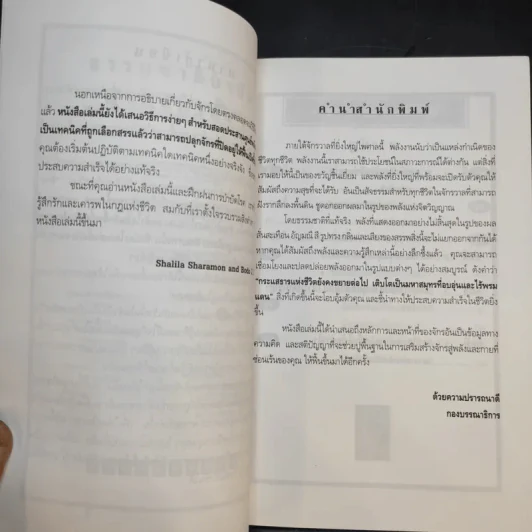 นอกเหนือจากการอธิบายเกี่ยวกับจักรโดยตรงตลอดทั้ง
แล้ว หนังสือเล่มนี้ยังได้เสนอวิธีการง่ายๆ สำหรับสอดประสาน
เป็นเทคนิคที่ถูกเลือกสรรแล้วว่าสามารถปลุกจักรที่ปิดอยู่ให้
คุณต้องเริ่มต้นปฏิบัติตามเทคนิคใดเทคนิคหนึ่งอย่างจริงจัง
ประสบความสำเร็จได้อย่างแท้จริง
ขณะที่คุณอ่านหนังสือเล่มนี้และฝึกฝนการบำบัดโรค
รู้สึกรักและเคารพในกฎแห่งชีวิต สมกับที่เราตั้งใจรวบรวม
หนังสือเล่มนี้ขึ้นมา
Shalila Sharamon and
คำนำสำนักพิมพ์
ภายใต้จักรวาลที่ยิ่งใหญ่ไพศาลนี้ พลังงานนับว่าเป็นแหล่งกำเนิดของ
ชีวิตทุกชีวิต พลังงานนี้เราสามารถใช้ประโยชน์ในสภาวะการณ์ได้ต่างกัน แต่สิ่งที่
เรามอบให้นี้เป็นของขวัญชิ้นเยี่ยม และพลังที่ยิ่งใหญ่ที่พร้อมจะเปิดรับตัวคุณให้
สัมผัสถึงความสุขที่จะได้รับ อันเป็นสัจธรรมสำหรับทุกชีวิตในจักรวาลที่สามารถ
ฝังรากลึกลงพื้นดิน ชูดอกออกผลมาในรูปของพลังแห่งจิตวิญญาณ
โดยธรรมชาติที่แท้จริง พลังที่แสดงออกมาอย่างไม่สิ้นสุดในรูปของผล
สั่นสะเทือน อัญมณี สี รูปทรง กลิ่นและเสียงของสรรพสิ่งนี้จะไม่แยกออกจากกันได้
หากคุณได้สัมผัสถึงพลังและความรู้สึกเหล่านี้อย่างลึกซึ้งแล้ว คุณจะสามารถ
เชื่อมโยงและปลดปล่อยพลังออกมาในรูปแบบต่างๆ ได้อย่างสมบูรณ์ ดังคำว่า
"กระแสธารแห่งชีวิตยังคงขยายต่อไป เติบโตเป็นมหาสมุทรที่อบอุ่นและไร้พรม
แดน" สิ่งที่เกิดขึ้นนี้จะโอบอุ้มตัวคุณ และชี้นำทางให้ประสบความสำเร็จในชีวิตยิ่ง
ขึ้น
หนังสือเล่มนี้ได้นำเสนอถึงหลักการและหน้าที่ของจักรอันเป็นข้อมูลทาง
ความคิด และสติปัญญาที่จะช่วยปูพื้นฐานในการเสริมสร้างจักรสู่พลังและกายที่
ซ่อนเร้นของคุณ ให้ฟื้นขึ้นมาได้อีกครั้ง
ด้วยความปรารถนาดี
กองบรรณาธิการ